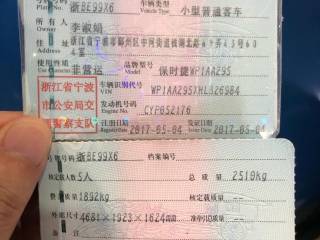 浙BE99X6 车辆类型 Vehicle Type 小型普通客车
所有人 李淑娟
浙江省宁波市鄞州区中河街道
使用性质 Use Character 非营运 品牌型号 Model 保时捷WP1AA295
浙江省宁波
市公安局交
警察支队
车辆识别代号 VIN
发动机号码 Engine No. CYP052176
注册日期 Register Date 2017-05-04 发证日期 Issue Date 2017-05-04
号牌号码 浙BE99X6 档案编号
核定载人数 5人 总质量 2510kg
整备质量 1892kg 核定载质量
外廓尺寸 4681×1923×1624 准牵引总质量